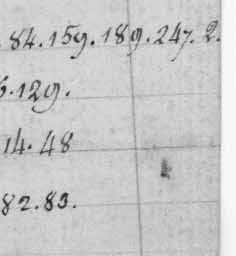 84.159.189.247.2.
6.129.
14.48
82.83.